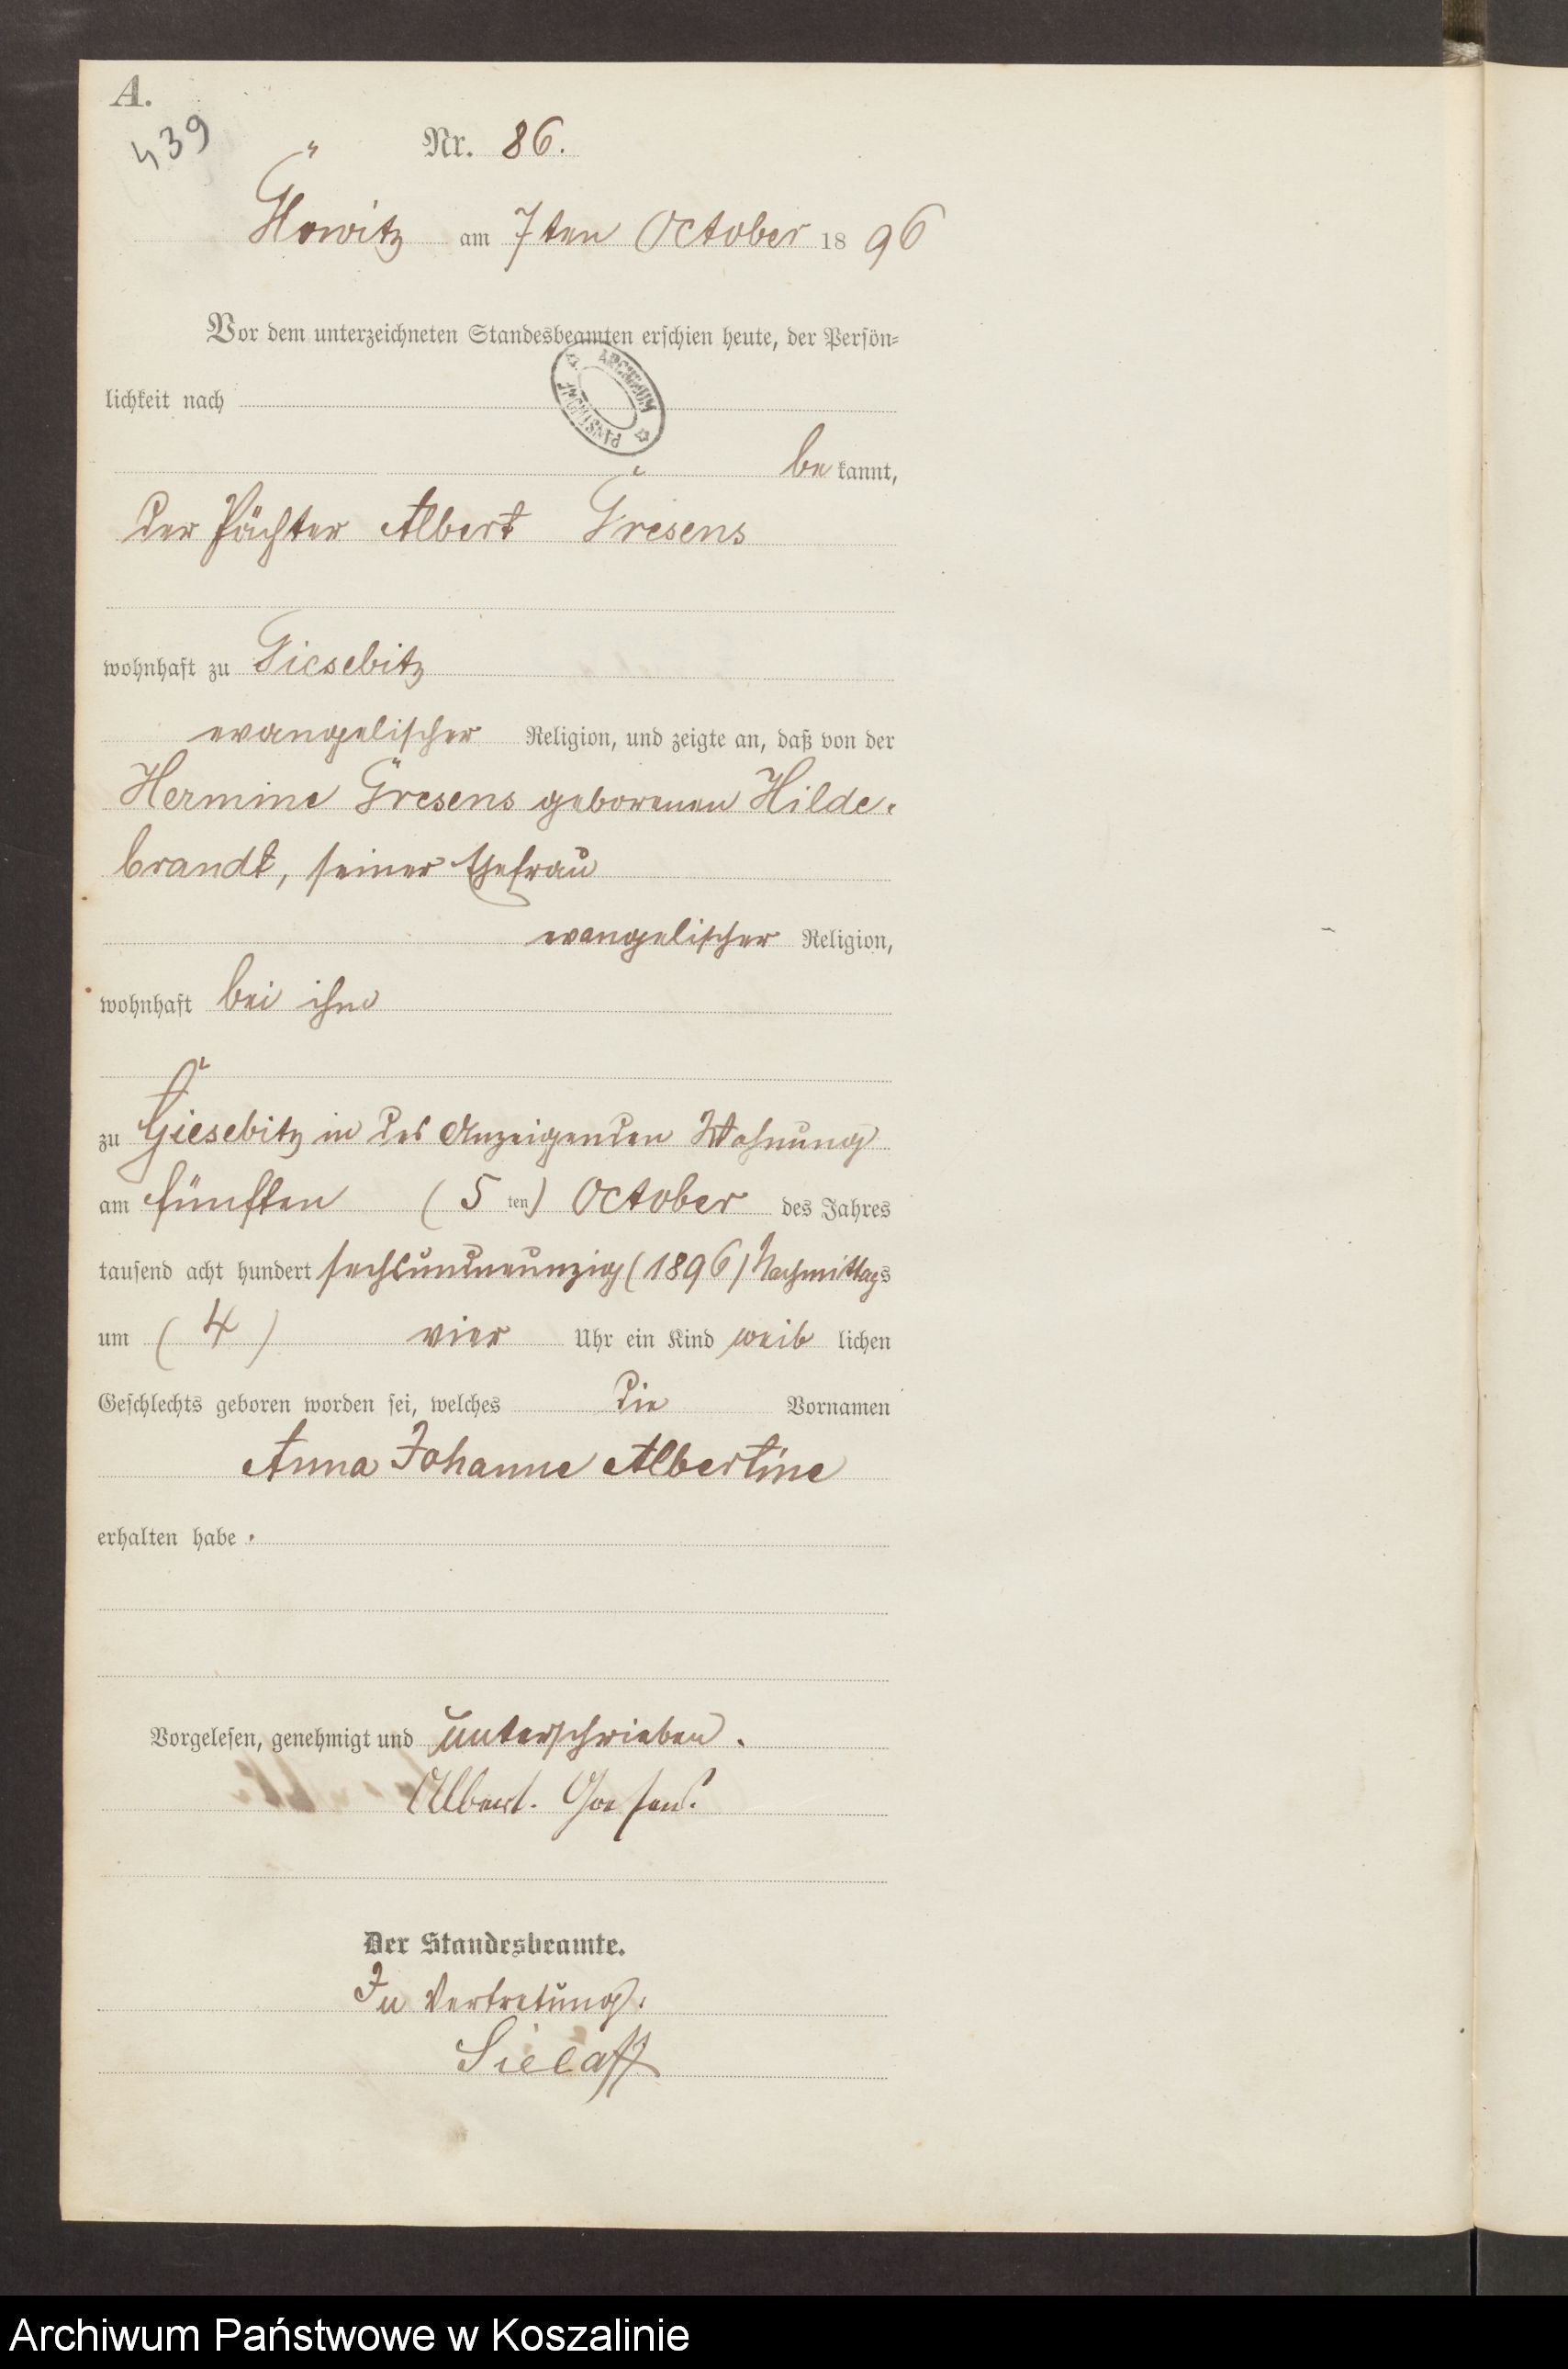 A.
439
Nr. 86.
Glowitz am 7ten October 1896
Vor dem unterzeichneten Standesbeamten erschien heute, der Persön-
lichkeit nach
ARCHIWUM PAŃSTWOWE
bekannt,
der Pächter Albert Gresens
wohnhaft zu Giesebitz
evangelischer Religion, und zeigte an, daß von der
Hermine Gresens geborenen Hilde-
brandt, seiner Ehefrau
evangelischer Religion,
wohnhaft bei ihm
zu Giesebitz in des Anzeigenden Wohnung
am fünften (5ten) October des Jahres
tausend acht hundert sechsundneunzig (1896) Nachmittags
um (4) vier Uhr ein Kind weiblichen
Geschlechts geboren worden sei, welches die Vornamen
Anna Johanne Albertine
erhalten habe.
Vorgelesen, genehmigt und unterschrieben.
Albert. Gresens.
Der Standesbeamte.
In Vertretung.
Sielaff
Archiwum Państwowe w Koszalinie